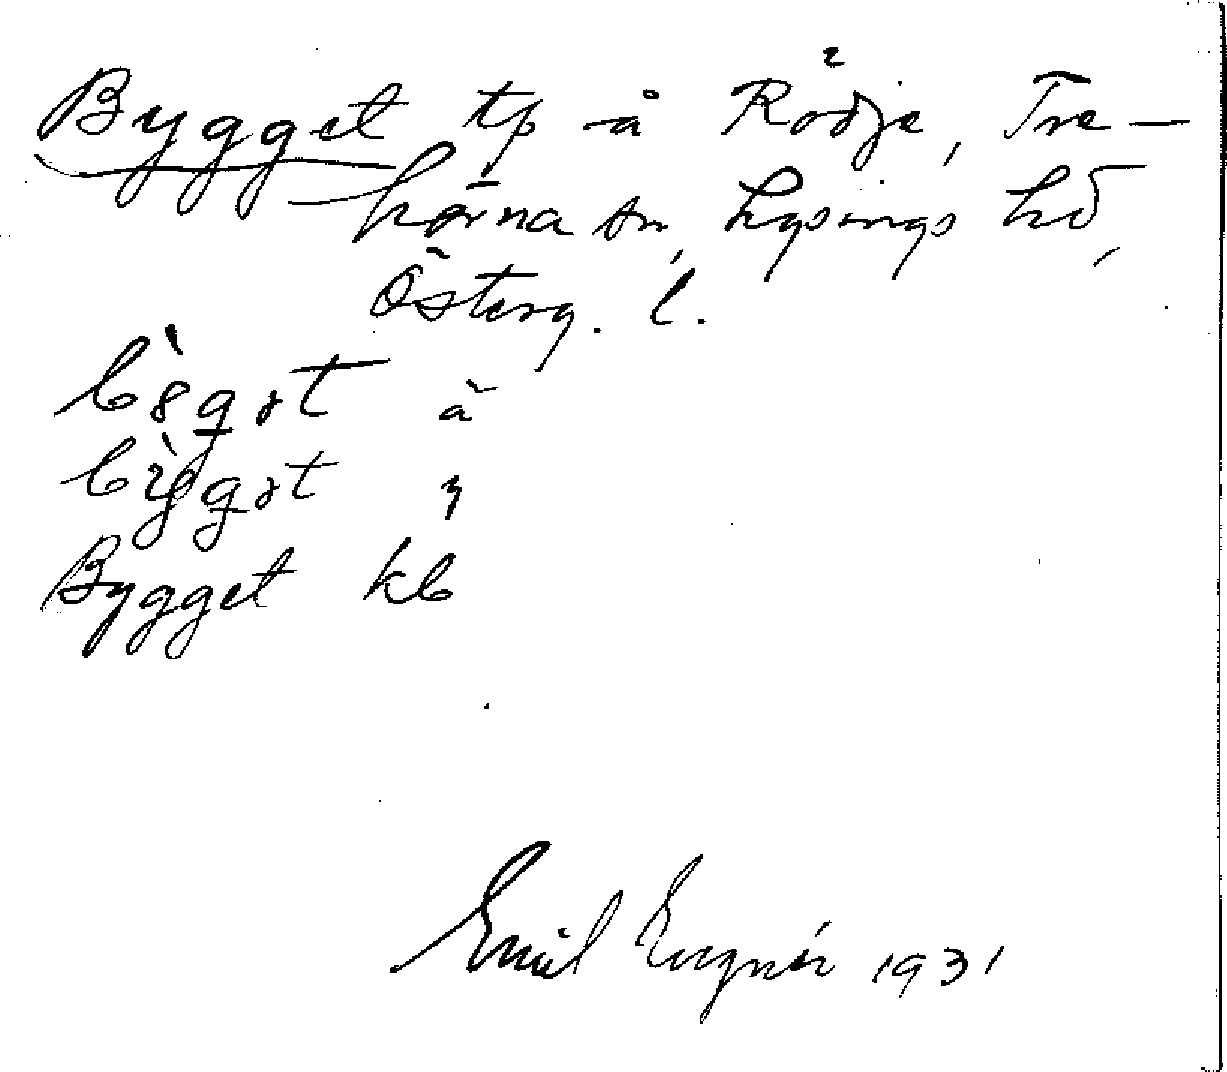 Bygget tp å Rödje, Tre-
hörna sn, Lysings hd,
Österg. l.
b8̀gət ä
bỳgət y
Bygget kb
Emil 1931